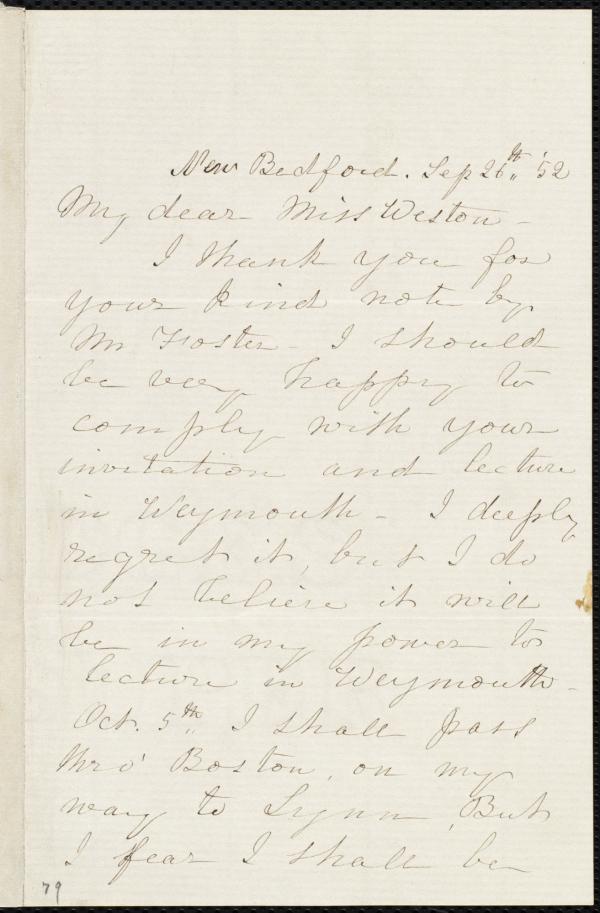 New Bedford. Sep 26th '52
My dear Miss Weston -
I thank you for
your kind note by
Mr Foster - I should
be very happy to
comply with your
invitation and lecture
in Weymouth - I deeply
regret it, but I do
not believe it will
be in my power to
lecture in Weymouth -
Oct. 5th I shall pass
thro' Boston, on my
way to Lynn, But
I fear I shall be
79